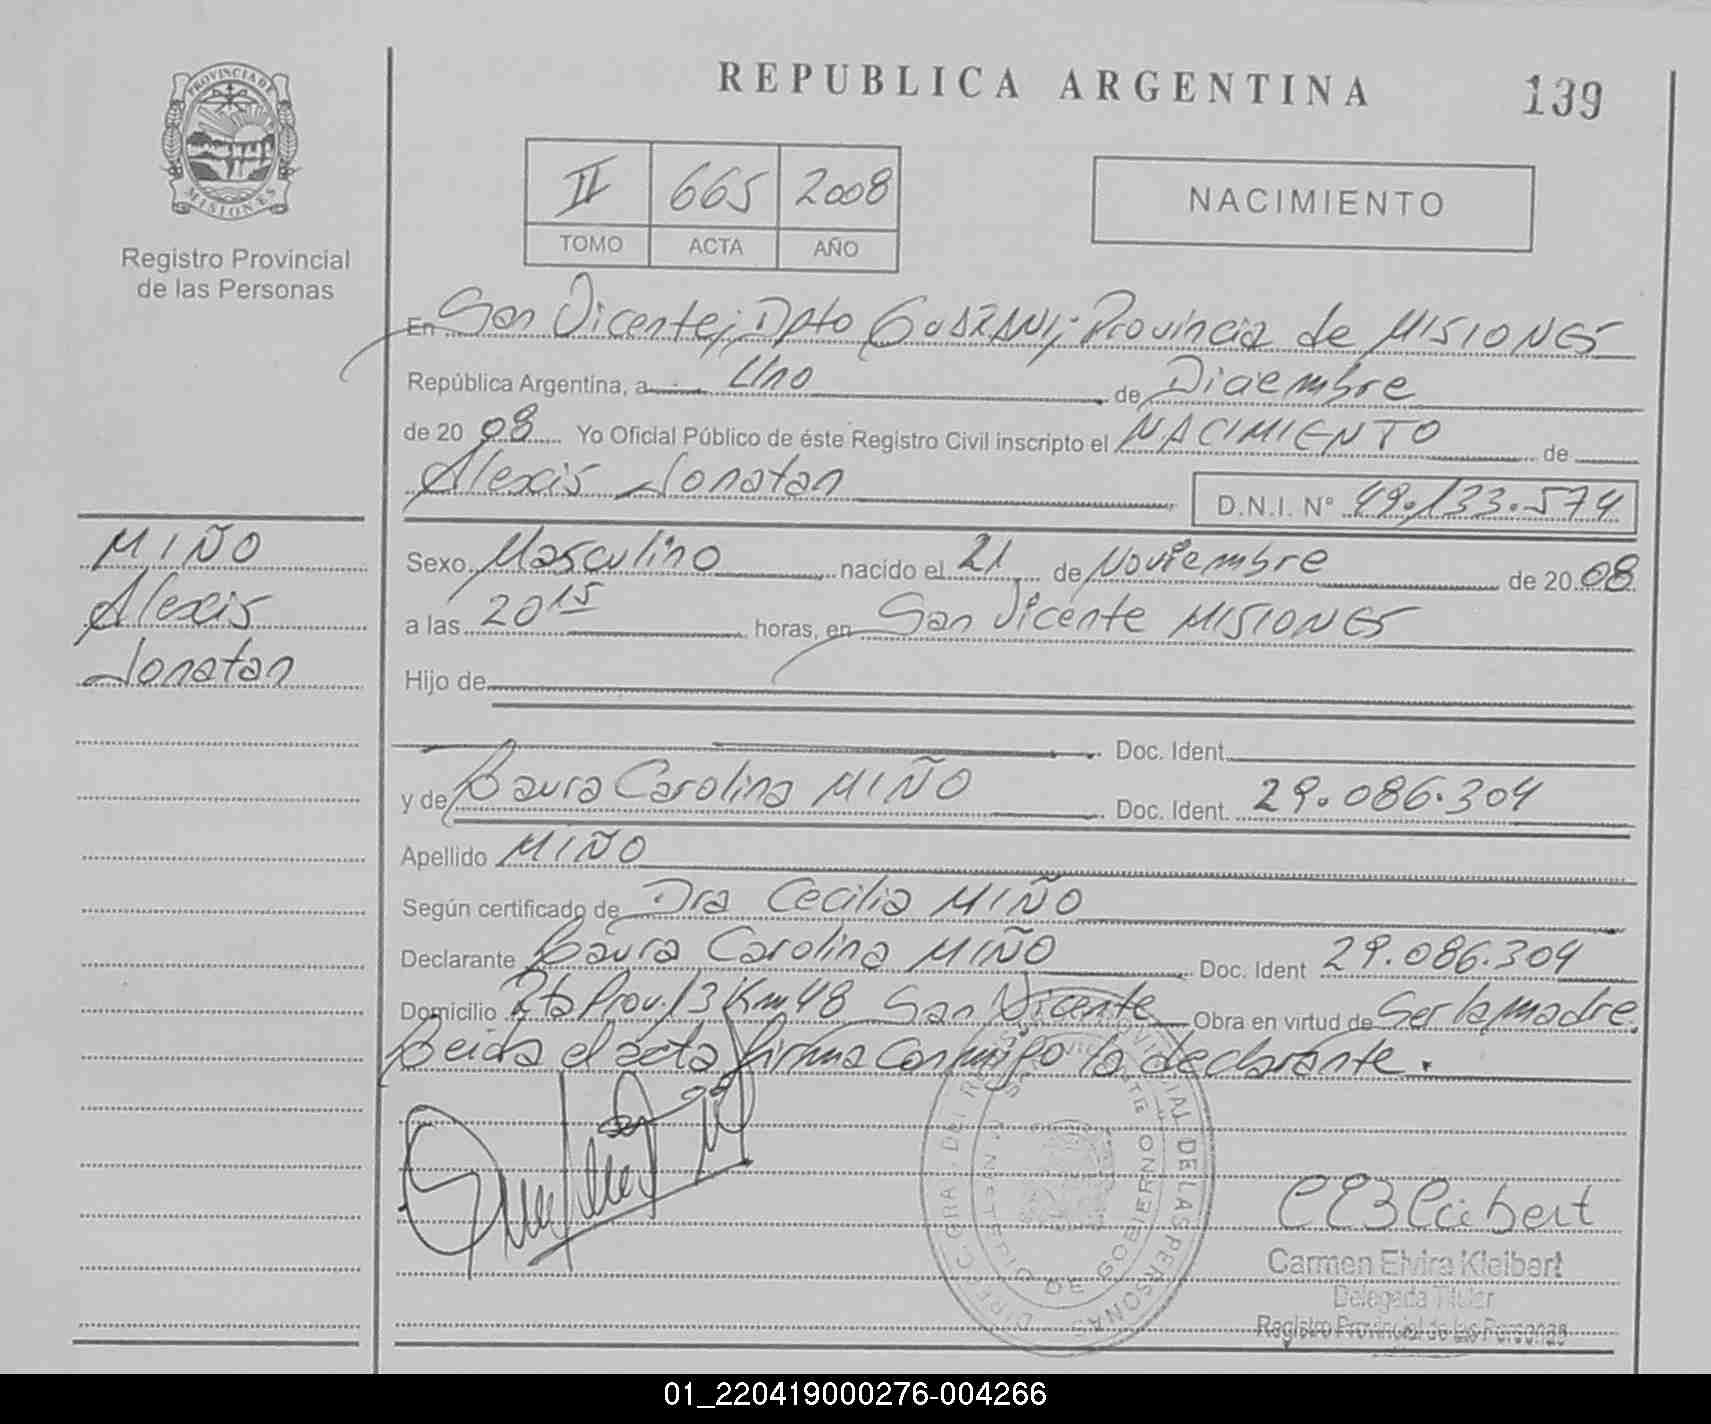 REPUBLICA ARGENTINA
139
PROVINCIA DE
MISIONES
Registro Provincial
de las Personas
II 665 2008
TOMO ACTA AÑO
NACIMIENTO
En San Vicente; Dpto GUARANI; Provincia de MISIONES
República Argentina, a Uno de Diciembre
de 20 08 Yo Oficial Público de éste Registro Civil inscripto el NACIMIENTO de
Alexis Jonatan D.N.I. Nº 49.133.574
MIÑO
Alexis
Jonatan
Sexo Masculino nacido el 21 de Noviembre de 20 08
a las 20 15 horas, en San Vicente MISIONES
Hijo de
Doc. Ident.
y de Laura Carolina MIÑO Doc. Ident. 29.086.304
Apellido MIÑO
Según certificado de Dra Cecilia MIÑO
Declarante Laura Carolina MIÑO Doc. Ident 29.086.304
Domicilio Rta Prov. 13 Km 48 San Vicente Obra en virtud de Ser la madre.
Leida el acta firma conmigo la declarante.
MINISTERIO DE GOBIERNO
Carmen Elvira Kleibert
Delegada Titular
Registro Provincial de las Personas
01_220419000276-004266